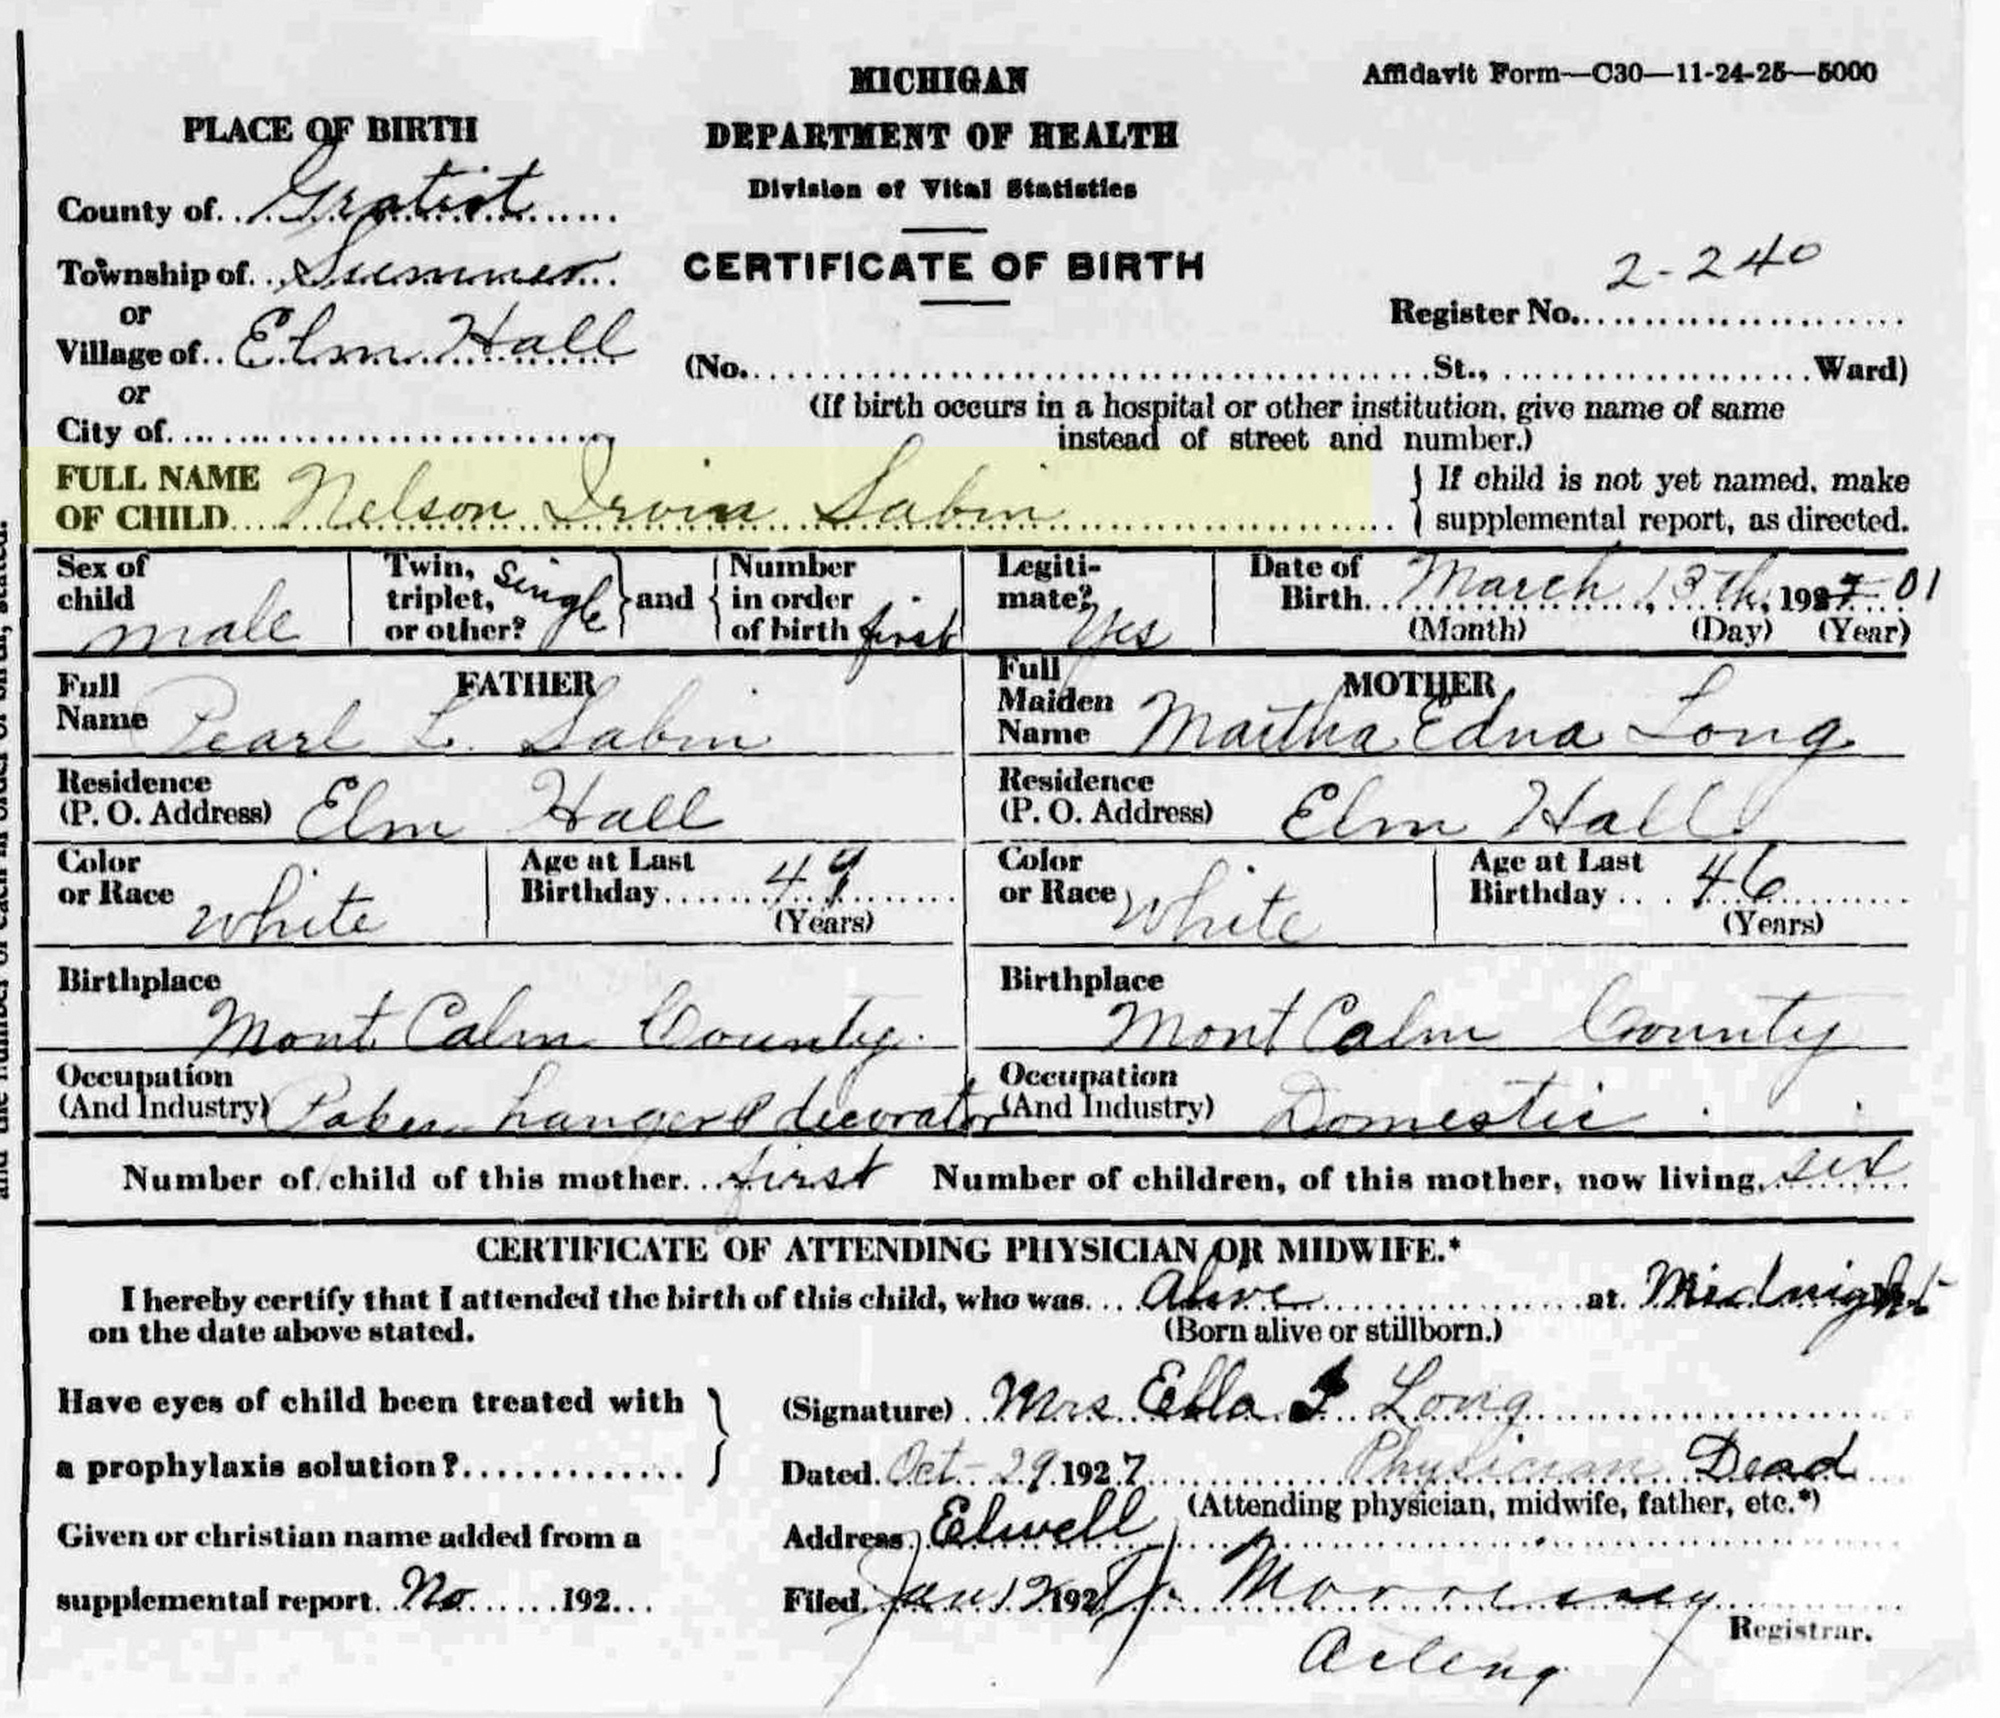 MICHIGAN
Affidavit Form—C30—11-24-25—5000
DEPARTMENT OF HEALTH
Division of Vital Statistics
CERTIFICATE OF BIRTH
PLACE OF BIRTH
County of Gratiot
Township of Sumner
or
Village of Elm Hall
or
City of
2-240
Register No.
(No. St., Ward)
(If birth occurs in a hospital or other institution, give name of same
instead of street and number.)
FULL NAME
OF CHILD Nelson Irvin Sabin
If child is not yet named, make
supplemental report, as directed.
Sex of
child
male
Twin,
triplet,
or other?
single
and
Number
in order
of birth first
Legiti-
mate?
Yes
Date of
Birth March 13th, 192 01
(Month) (Day) (Year)
FATHER
Full
Name Pearl L. Sabin
MOTHER
Full
Maiden
Name Martha Edna Long
Residence
(P. O. Address) Elm Hall
Residence
(P. O. Address) Elm Hall
Color
or Race White
Age at Last
Birthday 49
(Years)
Color
or Race White
Age at Last
Birthday 46
(Years)
Birthplace
Mont Calm County
Birthplace
Mont Calm County
Occupation
(And Industry) Paber hanger & decorator
Occupation
(And Industry) Domestic
Number of child of this mother first Number of children, of this mother, now living, six
CERTIFICATE OF ATTENDING PHYSICIAN OR MIDWIFE.*
I hereby certify that I attended the birth of this child, who was Alive at Midnight
on the date above stated. (Born alive or stillborn.)
Have eyes of child been treated with
a prophylaxis solution?
(Signature) Mrs Ella J Long
Dated Oct 29 1927 Physician Dead
(Attending physician, midwife, father, etc.*)
Given or christian name added from a
supplemental report No 192
Address Elwell
Filed Jan 12 192
Registrar.
and the number of each in order of birth, stated.